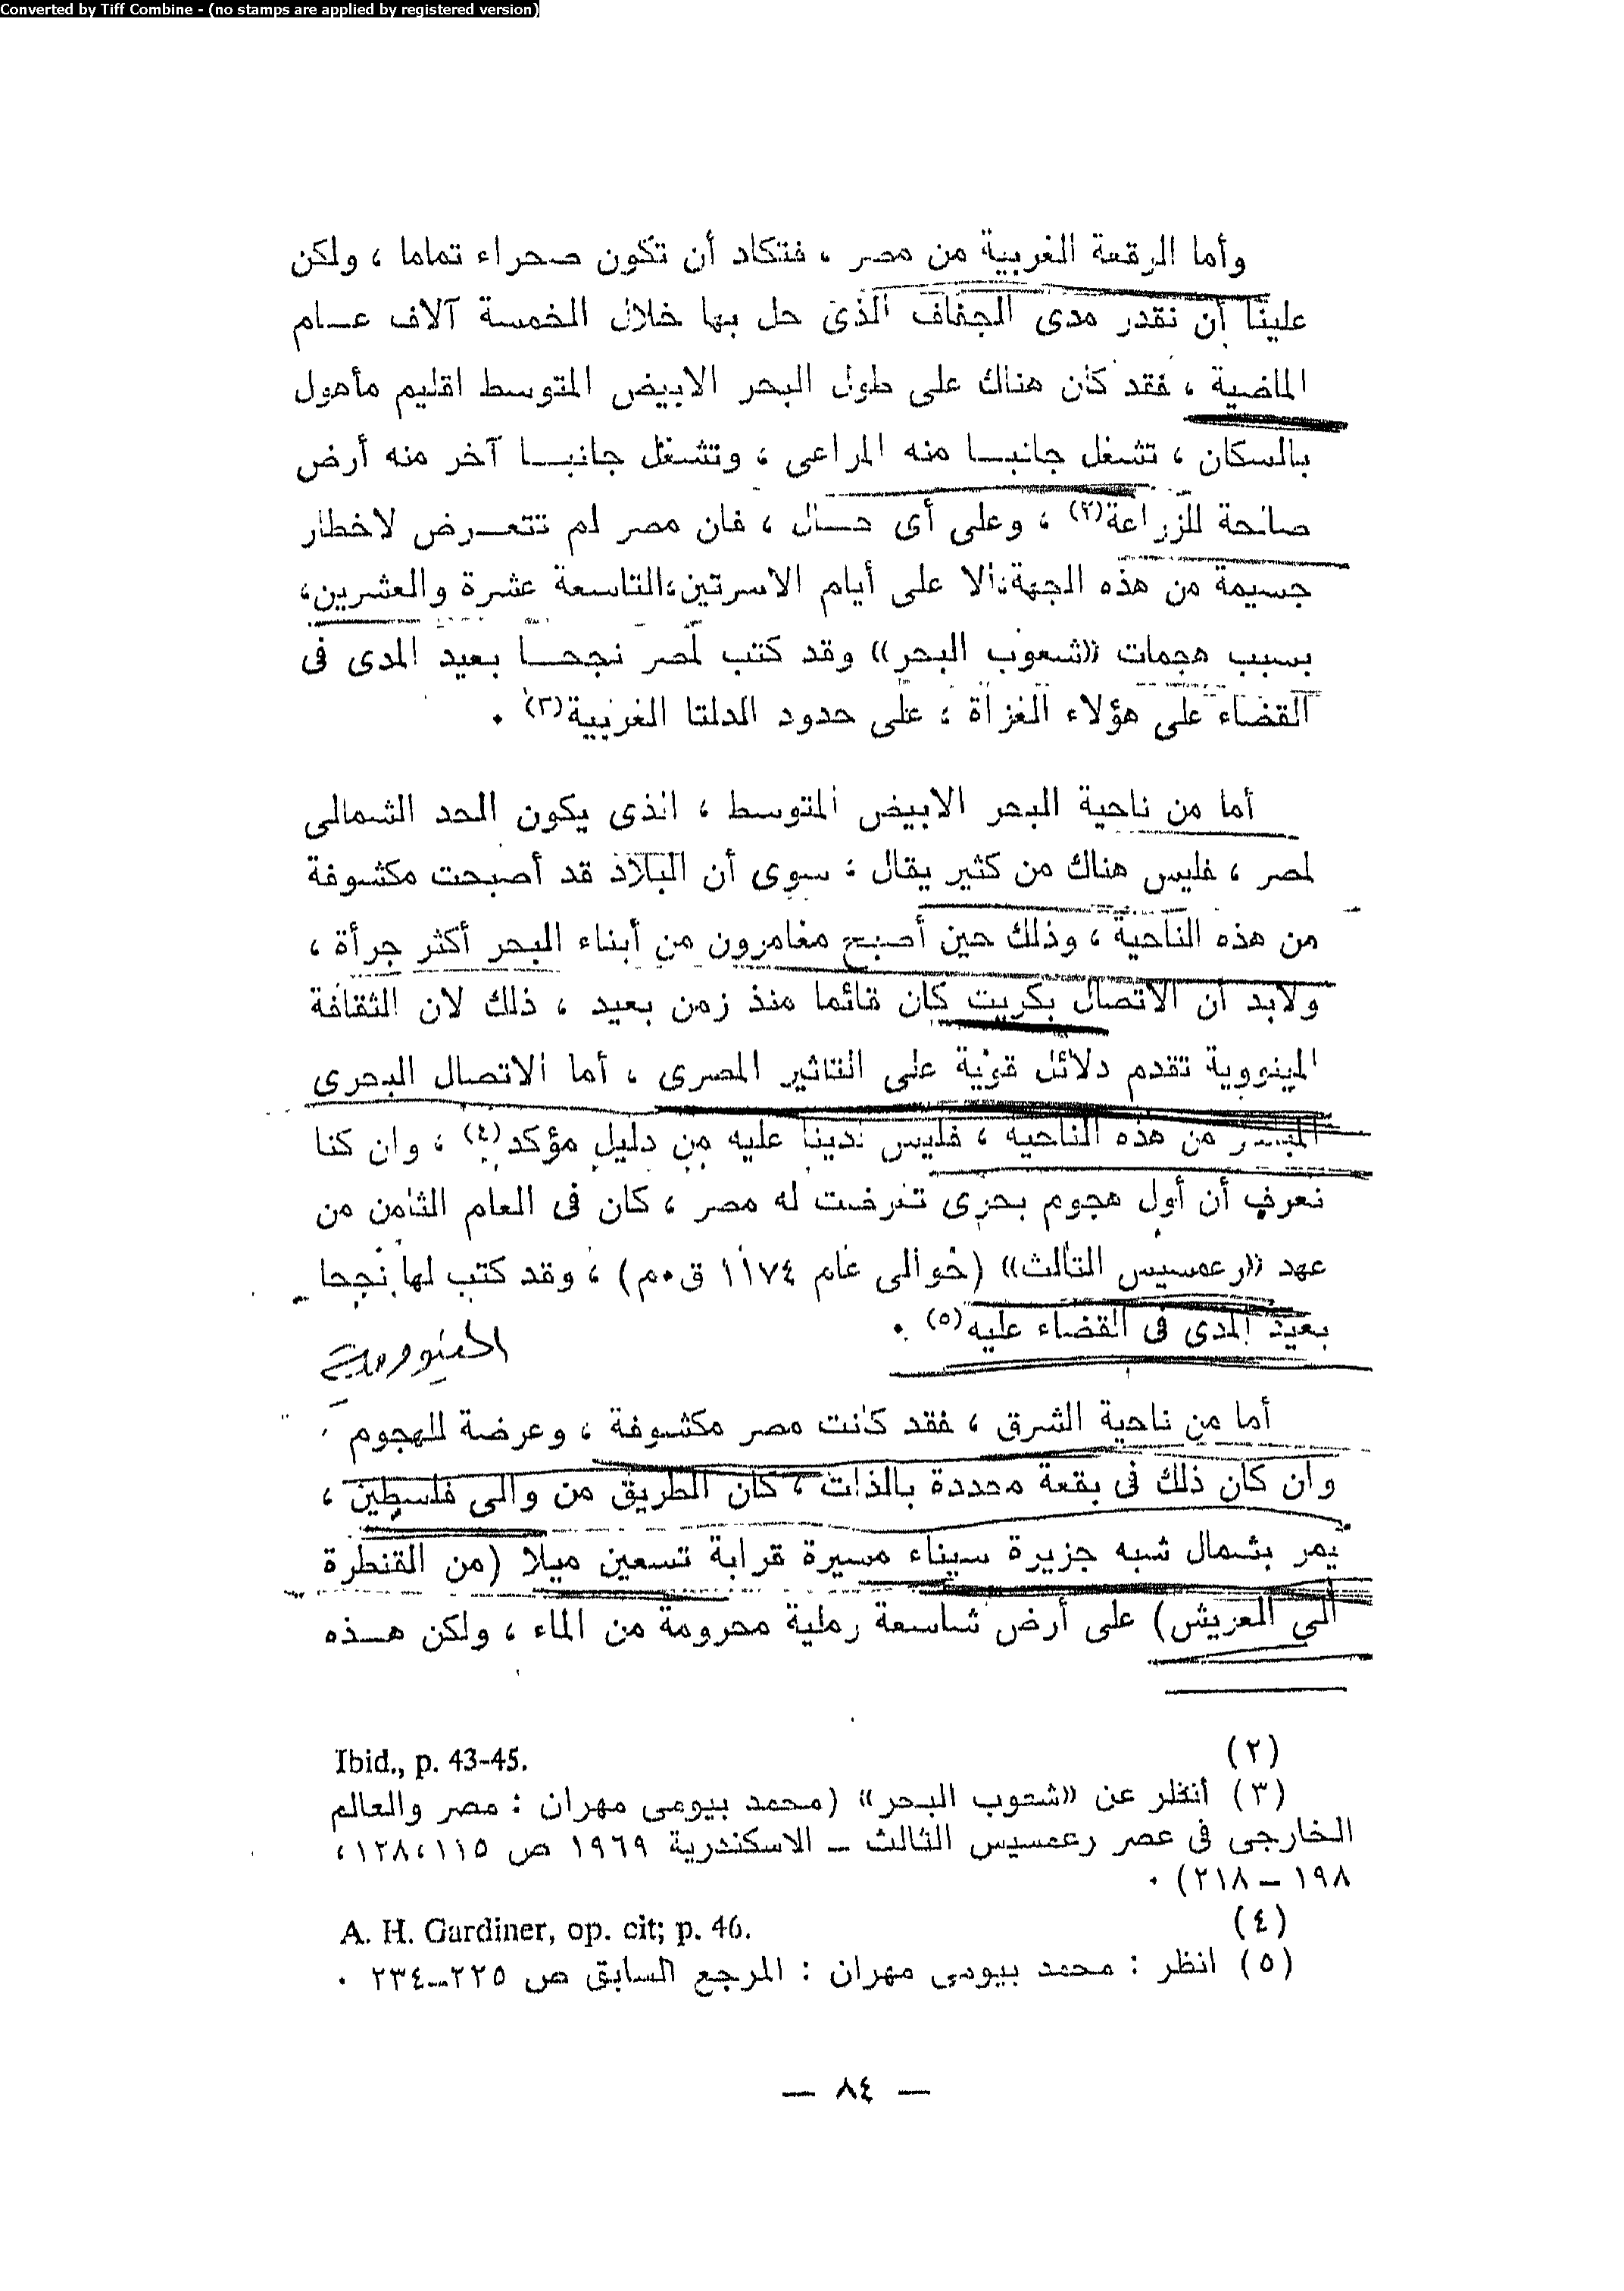 Converted by Tiff Combine - (no stamps are applied by registered version)
وأما الرقعة الغربية من مصر ، فتكاد أن تكون صحراء تماما ، ولكن
علينا أن نقدر مدى الجفاف الذى حل بها خلال الخمسة آلاف عـــام
الماضية ، فقد كان هناك على طول البحر الابيض المتوسط اقليم مأهول
بالسكان ، تشغل جانبـــا منه المراعى ، وتشغل جانبـــا آخر منه أرض
صالحة للزراعة(٢) ، وعلى أى حـــال ، فان مصر لم تتعـــرض لاخطار
جسيمة من هذه الجهة، الا على أيام الاسرتين، التاسعة عشرة والعشرين،
بسبب هجمات «شعوب البحر» وقد كتب لمصر نجحـــا بعيد المدى فى
القضاء على هؤلاء الغزاة ، على حدود الدلتا الغربية(٣) ٠
أما من ناحية البحر الابيض المتوسط ، الذى يكون الحد الشمالى
لمصر ، فليس هناك من كثير يقال ، سوى أن البلاد قد أصبحت مكشوفة
من هذه الناحية ، وذلك حين أصبح مغامرون من أبناء البحر أكثر جرأة ،
ولابد أن الاتصال بكريت كان قائما منذ زمن بعيد ، ذلك لان الثقافة
المينووية تقدم دلائل قوية على التاثير المصرى ، أما الاتصال البحرى
المباشر من هذه الناحية ، فليس لدينا عليه من دليل مؤكد(٤) ، وان كنا
نعرف أن أول هجوم بحرى تعرضت له مصر ، كان فى العام الثامن من
عهد «رعمسيس الثالث» (حوالى عام ١١٧٤ ق٠م) ، وقد كتب لها نجحا
بعيد المدى فى القضاء عليه(٥) ٠
أما من ناحية الشرق ، فقد كانت مصر مكشوفة ، وعرضة للهجوم
وان كان ذلك فى بقعة محددة بالذات ، كان الطريق من والى فلسطين ،
يمر بشمال شبه جزيرة سيناء مسيرة قرابة تسعين ميلا (من القنطرة
الى العريش) على أرض شاسعة رملية محرومة من الماء ، ولكن هـــذه
(٢) Ibid., p. 43-45.
(٣) أنظر عن «شعوب البحر» (محمد بيومى مهران : مصر والعالم
الخارجى فى عصر رعمسيس الثالث ــ الاسكندرية ١٩٦٩ ص ١١٥ ، ١٢٨ ،
١٩٨ ــ ٢١٨) ٠
(٤) A. H. Gardiner, op. cit; p. 46.
(٥) انظر : محمد بيومى مهران : المرجع السابق ص ٢٢٥ــ٢٣٤ ٠
— ٨٤ —